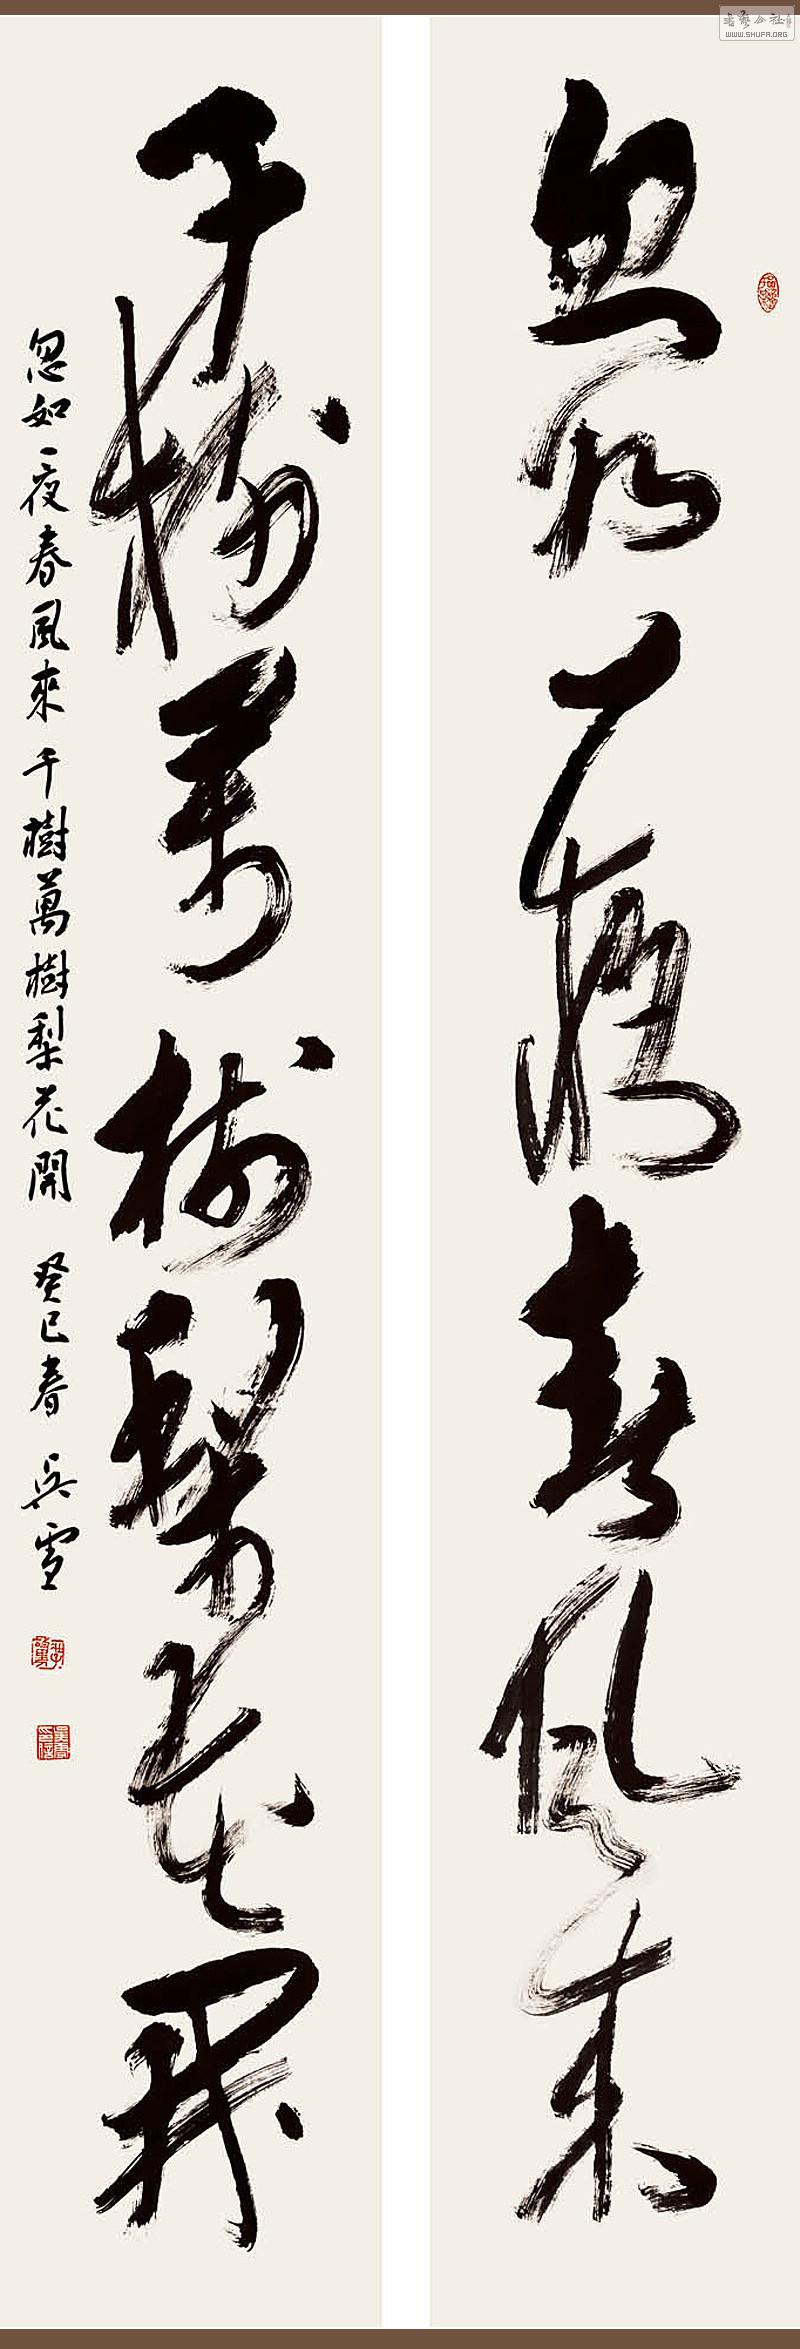 忽如一夜春風來
千樹萬樹梨花開
忽如一夜春風來千樹萬樹梨花開 癸巳春 吳雪
WWW.SHUFA.ORG